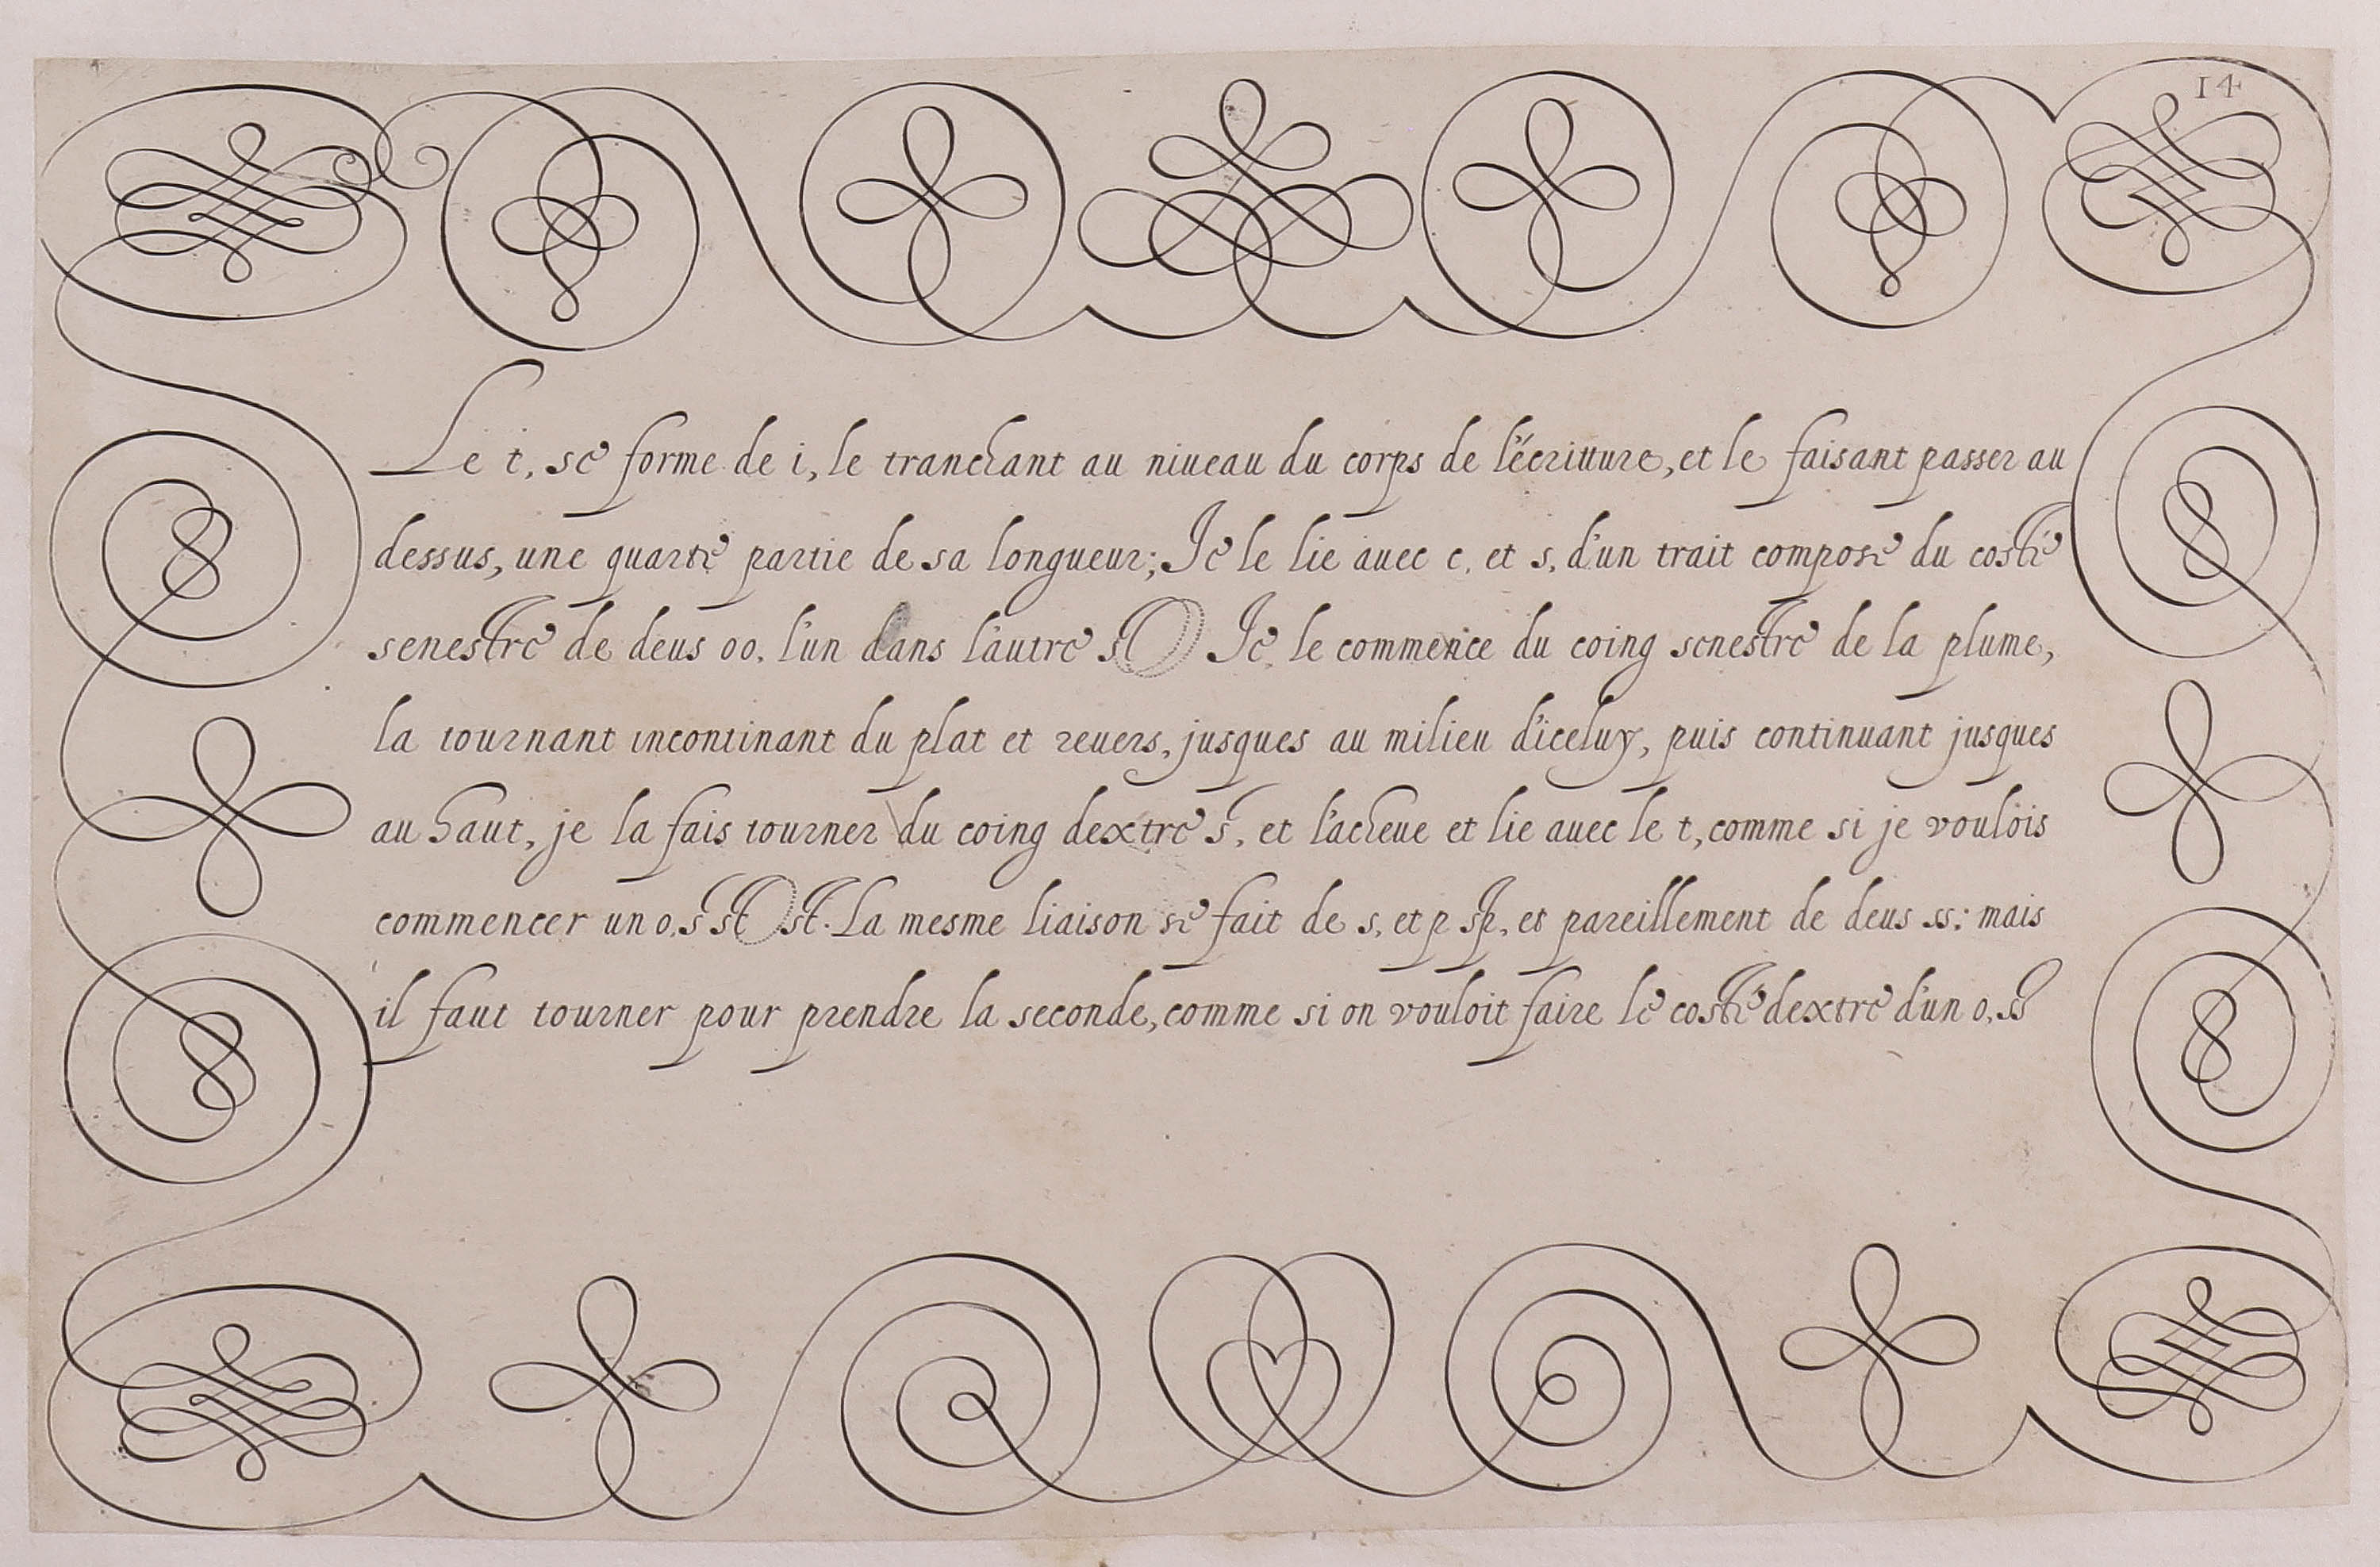 14
Le t, se forme de i, le tranchant au niueau du corps de l'écritture, et le faisant passer au
dessus, une quarte partie de sa longueur; Je le lie auec c, et s, d'un trait composé du costé
senestre de deus oo, l'un dans l'autre st Je, le commence du coing senestre de la plume,
la tournant incontinant du plat et reuers, jusques au milieu d'iceluy, puis continuant jusques
au haut, je la fais tourner du coing dextre s, et l'acheue et lie auec le t, comme si je voulois
commencer un o, s st st. La mesme liaison se fait de s, et p sp, et pareillement de deus ss: mais
il faut tourner pour prendre la seconde, comme si on vouloit faire le costé dextre d'un o, ss